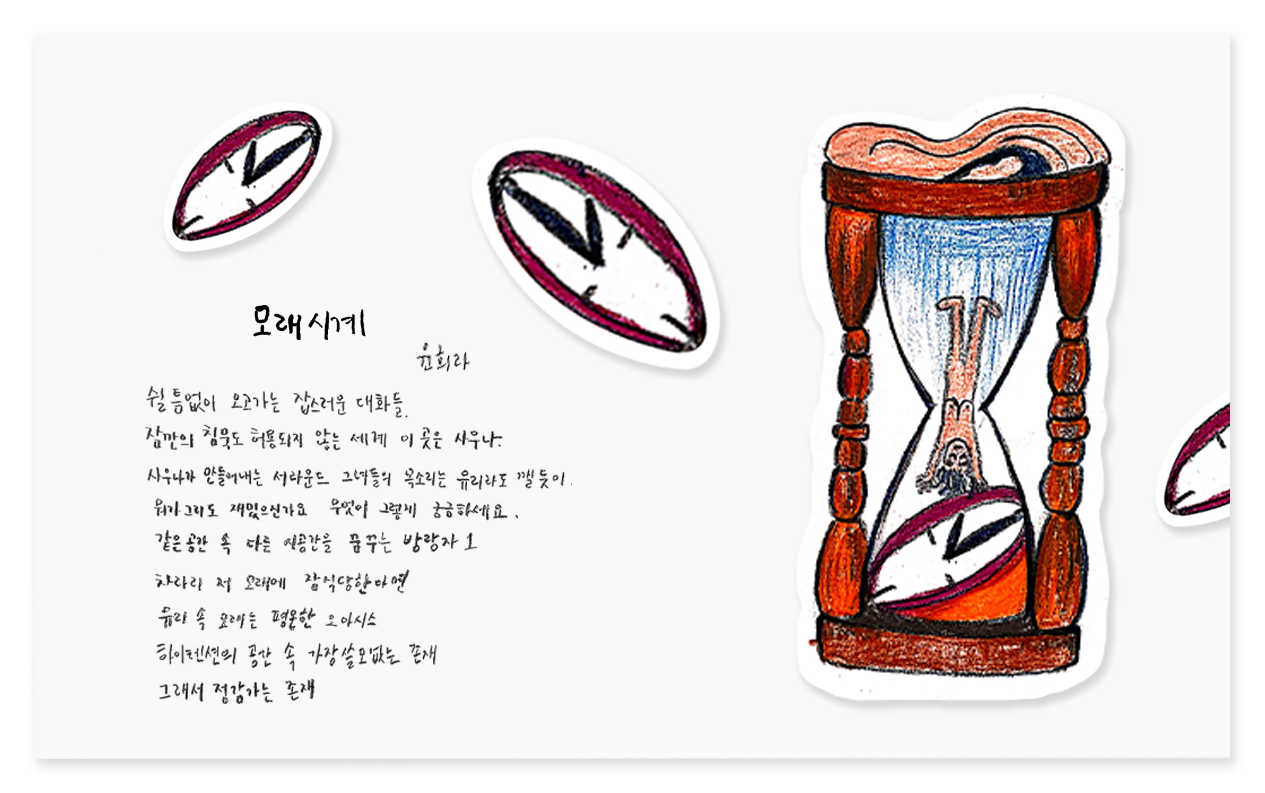 모래시계
윤희라
쉴 틈없이 오고가는 잡스러운 대화들.
잠깐의 침묵도 허용되지 않는 세계 이 곳은 사우나.
사우나가 만들어내는 서라운드 그녀들의 목소리는 유리라도 깰 듯이.
뭐가 그리도 재밌으신가요 무엇이 그렇게 궁금하세요.
같은 공간 속 다른 시공간을 꿈꾸는 방랑자 1
차라리 저 모래에 잠식당한다면
유리 속 모래는 평온한 오아시스
하이텐션의 공간 속 가장 쓸모없는 존재
그래서 정감가는 존재